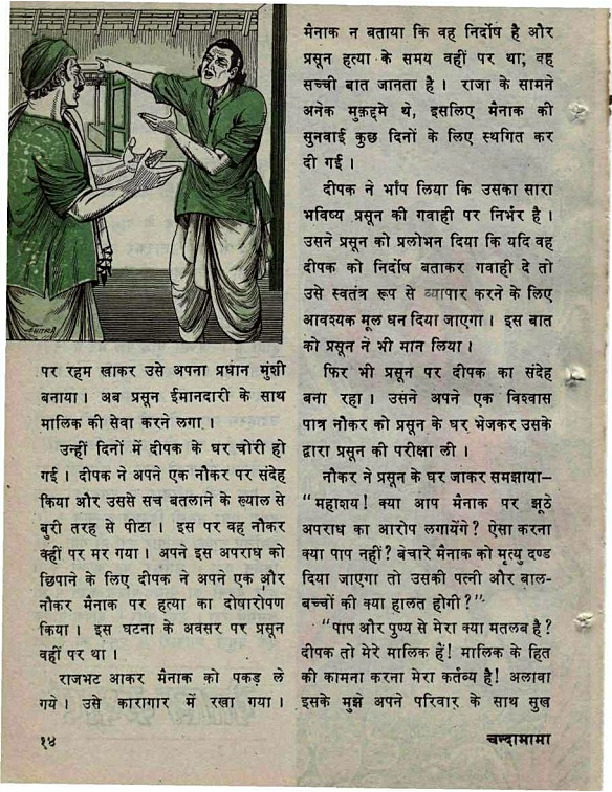 पर रहम खाकर उसे अपना प्रधान मुंशी
बनाया। अब प्रसून ईमानदारी के साथ
मालिक की सेवा करने लगा।
उन्हीं दिनों में दीपक के घर चोरी हो
गई। दीपक ने अपने एक नौकर पर संदेह
किया और उससे सच बतलाने के ख्याल से
बुरी तरह से पीटा। इस पर वह नौकर
वहीं पर मर गया। अपने इस अपराध को
छिपाने के लिए दीपक ने अपने एक और
नौकर मैनाक पर हत्या का दोषारोपण
किया। इस घटना के अवसर पर प्रसून
वहीं पर था।
राजभट आकर मैनाक को पकड़ ले
गये। उसे कारागार में रखा गया।
मैनाक न बताया कि वह निर्दोष है और
प्रसून हत्या के समय वहीं पर था; वह
सच्ची बात जानता है। राजा के सामने
अनेक मुक़द्दमे थे, इसलिए मैनाक की
सुनवाई कुछ दिनों के लिए स्थगित कर
दी गई।
दीपक ने भाँप लिया कि उसका सारा
भविष्य प्रसून की गवाही पर निर्भर है।
उसने प्रसून को प्रलोभन दिया कि यदि वह
दीपक को निर्दोष बताकर गवाही दे तो
उसे स्वतंत्र रूप से व्यापार करने के लिए
आवश्यक मूल धन दिया जाएगा। इस बात
को प्रसून ने भी मान लिया।
फिर भी प्रसून पर दीपक का संदेह
बना रहा। उसने अपने एक विश्वास
पात्र नौकर को प्रसून के घर भेजकर उसके
द्वारा प्रसून की परीक्षा ली।
नौकर ने प्रसून के घर जाकर समझाया—
"महाशय! क्या आप मैनाक पर झूठे
अपराध का आरोप लगायेंगे? ऐसा करना
क्या पाप नहीं? बेचारे मैनाक को मृत्यु दण्ड
दिया जाएगा तो उसकी पत्नी और बाल-
बच्चों की क्या हालत होगी?"
"पाप और पुण्य से मेरा क्या मतलब है?
दीपक तो मेरे मालिक हैं! मालिक के हित
की कामना करना मेरा कर्तव्य है! अलावा
इसके मुझे अपने परिवार के साथ सुख
१४
चन्दामामा
CHITRA